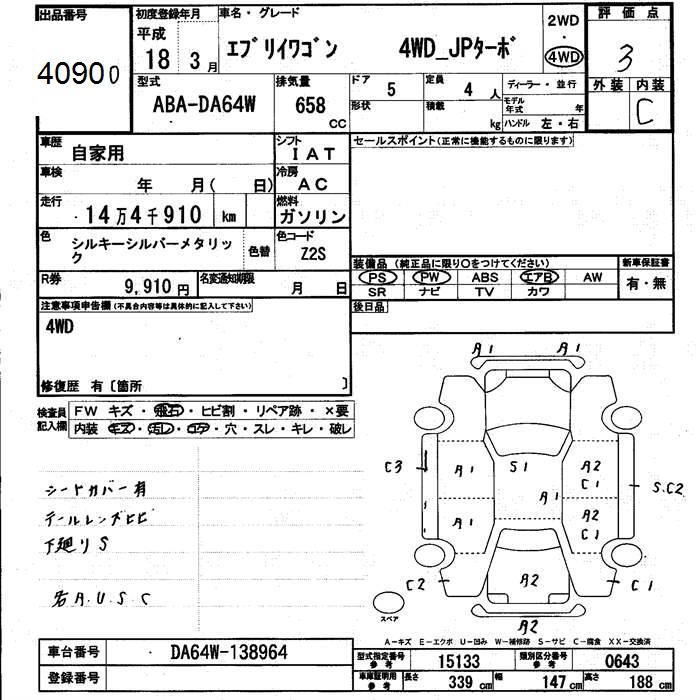 出品番号
40900
初度登録年月
平成
18 3月
車名・グレード
エブリイワゴン 4WD_JPターボ
2WD
・
4WD
評価点
3
外装 内装
C
型式
ABA-DA64W
排気量
658
CC
ドア 5
定員 4 人
形状
積載 kg
ディーラー・並行
モデル年式 年
ハンドル 左・右
車歴 自家用
シフト IAT
車検 年 月( 日)
冷房 AC
走行 14万4千910 km
燃料 ガソリン
色 シルキーシルバーメタリック
色替
色コード Z2S
R券 9,910円
名変通知期限 月 日
セールスポイント(正常に機能するものに限ります)
装備品 (純正品に限り○をつけてください)
新車保証書
PS PW ABS エアB AW
有・無
SR ナビ TV カワ
後日品
注意事項申告欄(不具合内容等は具体的に記入して下さい)
4WD
修復歴 有〔箇所 〕
検査員記入欄
FW キズ・飛石・ヒビ割・リペア跡・×要
内装 キズ・汚レ・コゲ・穴・スレ・キレ・破レ
シートカバー有
テールレンズヒビ
下廻りS
名A.U.S.C
A1 A1
C3
A1 S1 A2
C1
S.C2
A1
A1 A2
C1
C2 A2 C1
A2
スペア
A-キズ E-エクボ U-凹み W-補修跡 S-サビ C-腐食 XX-交換済
車台番号 DA64W-138964
登録番号
型式指定番号参考 15133
類別区分番号参考 0643
車庫証明用参考 長さ 339 cm 幅 147 cm 高さ 188 cm